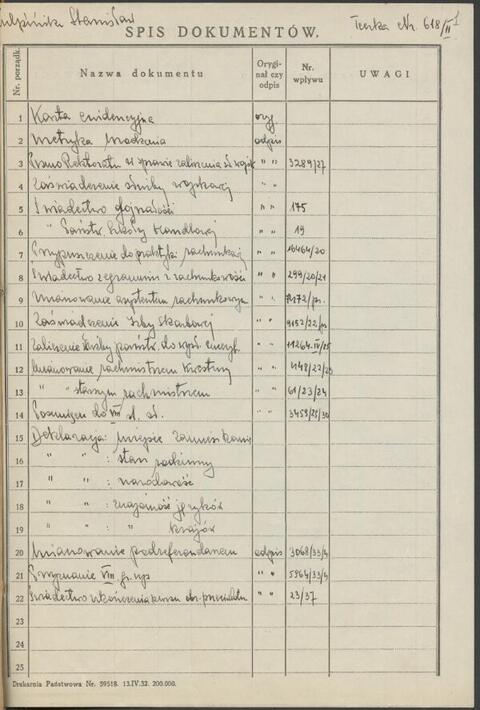 Stanisław Teczka Nr. 618/II
SPIS DOKUMENTÓW.
Nr. porządk. Nazwa dokumentu Orygi-nał czy odpis Nr. wpływu UWAGI
1 Karta ewidencyjna oryg
2 Metryka urodzenia odpis
3 Pismo Rektoratu w sprawie zaliczenia sł. wojsk " " 3289/27
4 Zaświadczenie służby wojskowej " "
5 Świadectwo dojrzałości " " 175
6 " Państw. Szkoły Handlowej " " 19
7 Przypuszczenie do praktyki rachunkowej " " 16464/20
8 Świadectwo z egzaminu z rachunkowości " " 299/20/21
9 Mianowanie asystentem rachunkowym " "
10 Zaświadczenie Izby Skarbowej " " 9152/22/
11 Zaliczenie służby państw. do wysł. emeryt. " " 11264.IV/25
12 Mianowanie rachmistrzem " " 448/22/23
13 " " starszym rachmistrzem " " 61/23/24
14 Posunięcie do VIII st. sł. " " 3459/29/30
15 Deklaracja: miejsce zamieszkania
16 " " : stan rodzinny
17 " " : narodowość
18 " " : znajomość języków
19 " " : " krajów
20 Mianowanie podreferendarzem odpis 3068/33/
21 Przyznanie VIII gr. up. " " 5964/33/
22 Świadectwo ukończenia kursu obr. " " 23/37
23
24
25
Drukarnia Państwowa Nr. 59518. 13.IV.32. 200.000.